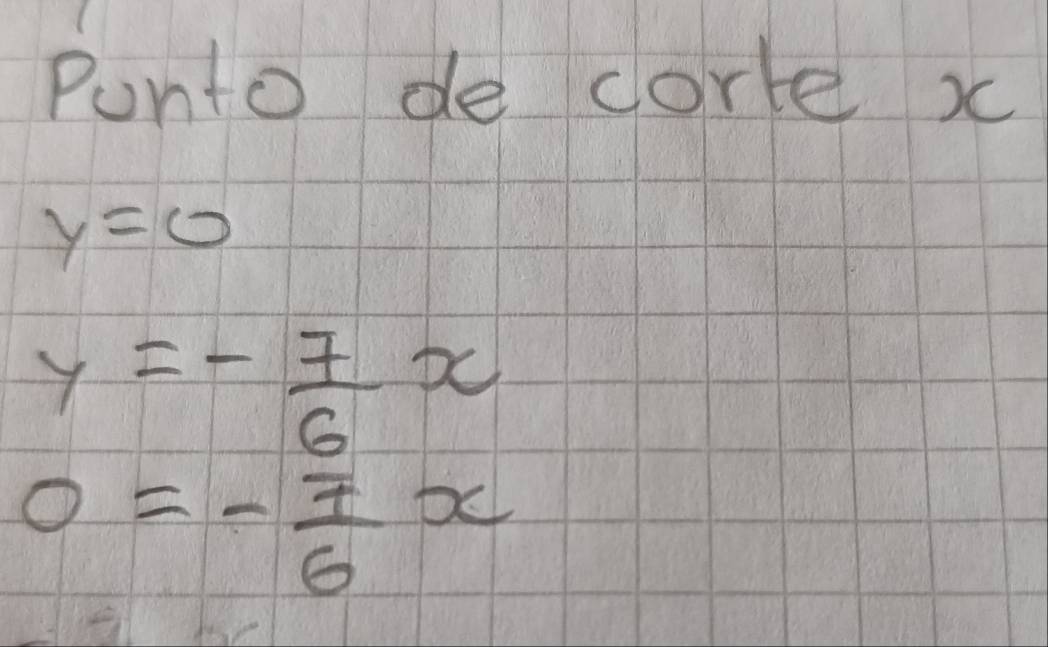 Punto de corte x
y = 0
y = - 7/6 x
0 = - 7/6 x